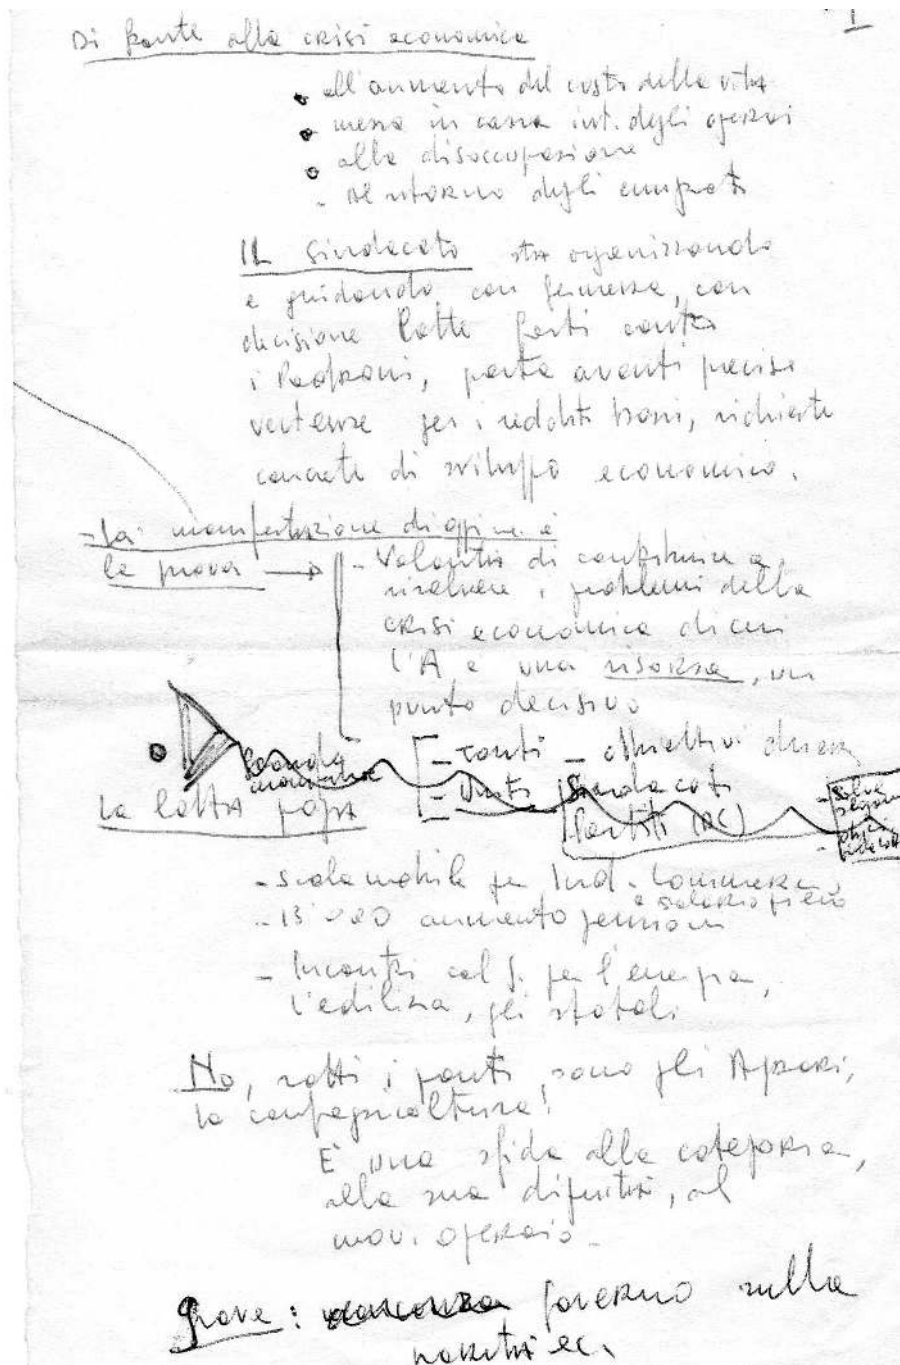 1
Di fronte alla crisi economica
• all'aumento del costo della vita
• messa in cassa int. degli operai
• alla disoccupazione
- Al ritorno degli emigrati
IL Sindacato sta organizzando
e guidando con fermezza, con
decisione lotte forti contro
i Padroni, porta avanti precise
vertenze per i redditi bassi, richieste
concrete di sviluppo economico.
- La manifestazione di oggi ne è
la prova → - Volontà di contribuire a
risolvere i problemi della
crisi economica di cui
l'A è una risorsa, un
punto decisivo
- Tanti - obiettivi diversi
- Uniti Sindacati
Partiti (DC)
La lotta paga
- Scala mobile per Ind. Commercio
e salario
- 13 000 aumento pensioni
- Incontri col G. per l'energia,
l'edilizia, gli statali
No, rotti i ponti, sono gli Agrari,
la confagricoltura!
È una sfida alla categoria,
alla sua dignità, al
mov. operaio -
Grave: governo sulla
parità ec.